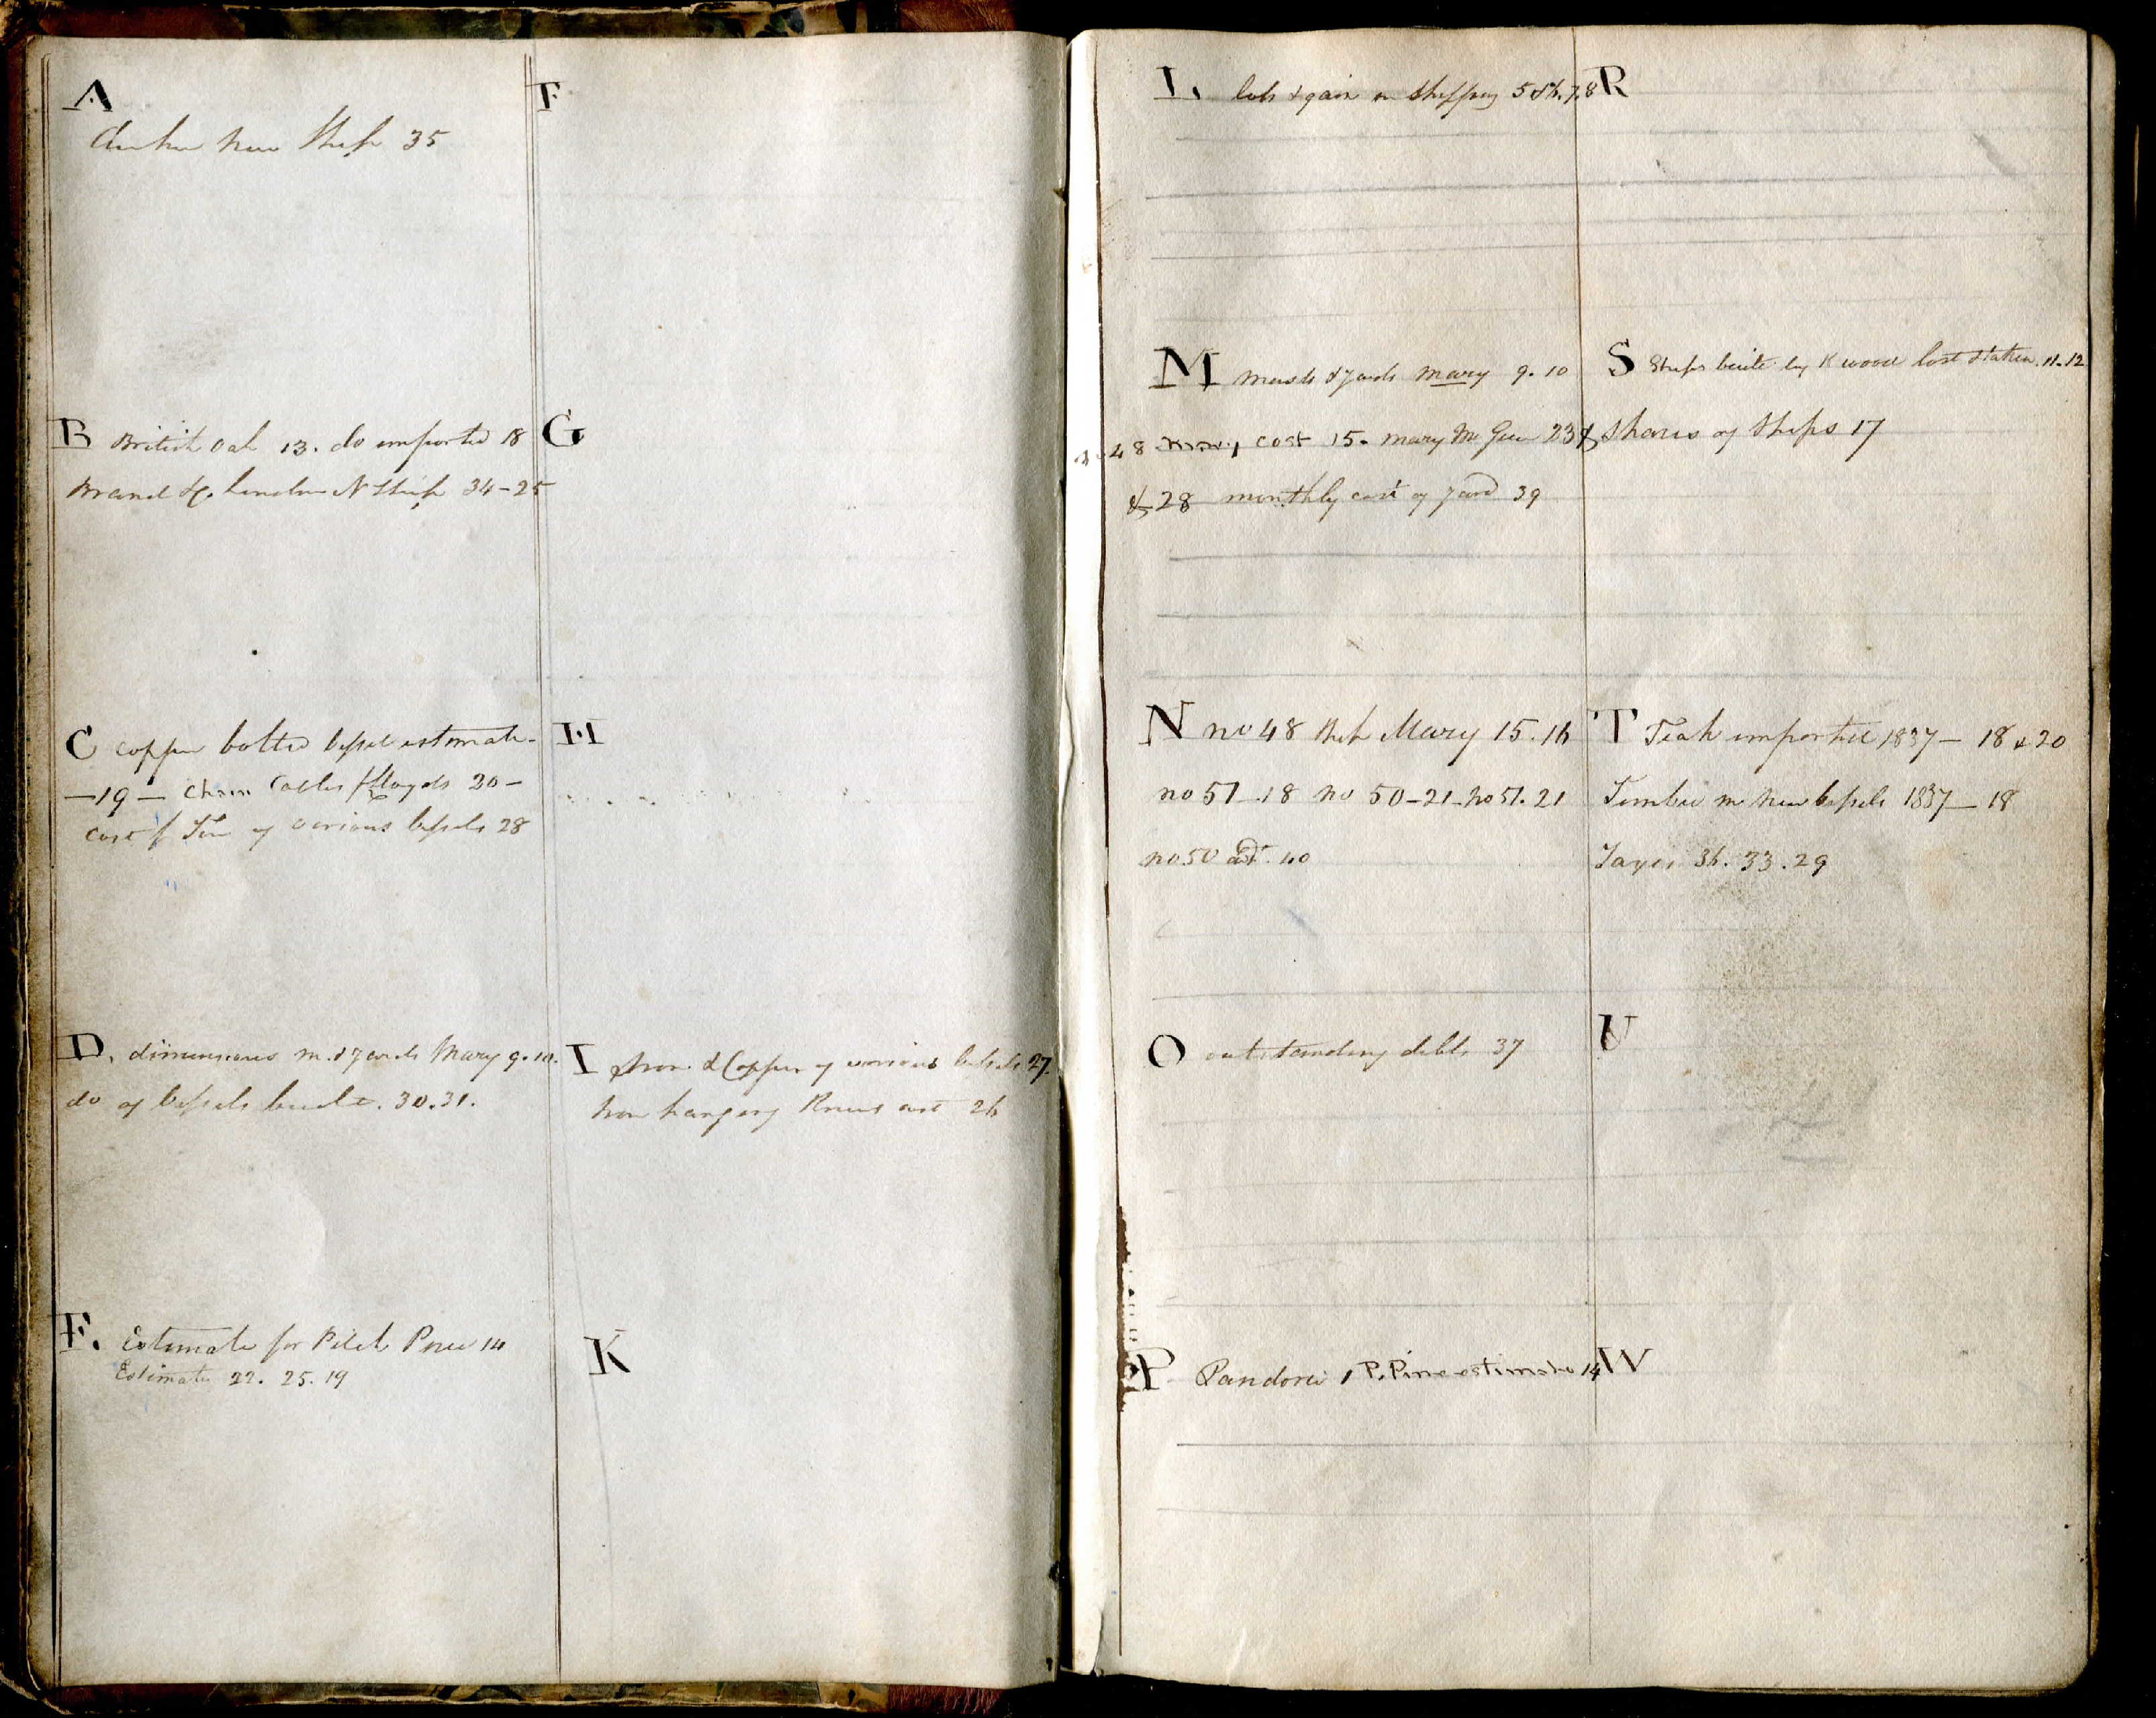 A
new Ship 35
B British Oak 13. do imported 18
Brand &c. London N Ship 34-25
C Copper bolted vessel estimate-
-19- Chain Cables Lloyds 20-
Cost Ton of various vessels 28
D, dimensions m. & yards Mary 9.10.
do of vessels built. 30.31.
E. Estimate for Pitch Pine 14
Estimate 22. 25. 19
F
G
H
I Iron & Copper of various vessels 27.
Iron hanging Knees cost 26
K
L, loss & gain on Shipping 5 & 6.7.8
M masts & yards Mary 9.10
48 cost 15. Mary 23
& 28 monthly cost of yard 39
N no 48 Ship Mary 15.16
no 51-18 no 50-21-no 51.21
no 50 40
O outstanding debts 37
P Pandora 1 P. Pine estimate 14
R
S Ships built by K wood lost & taken. 11.12
& Shares of Ships 17
T Teak imported 1837- 18 & 20
Timber in New vessels 1837-18
Taxes 36. 33. 29
U
W